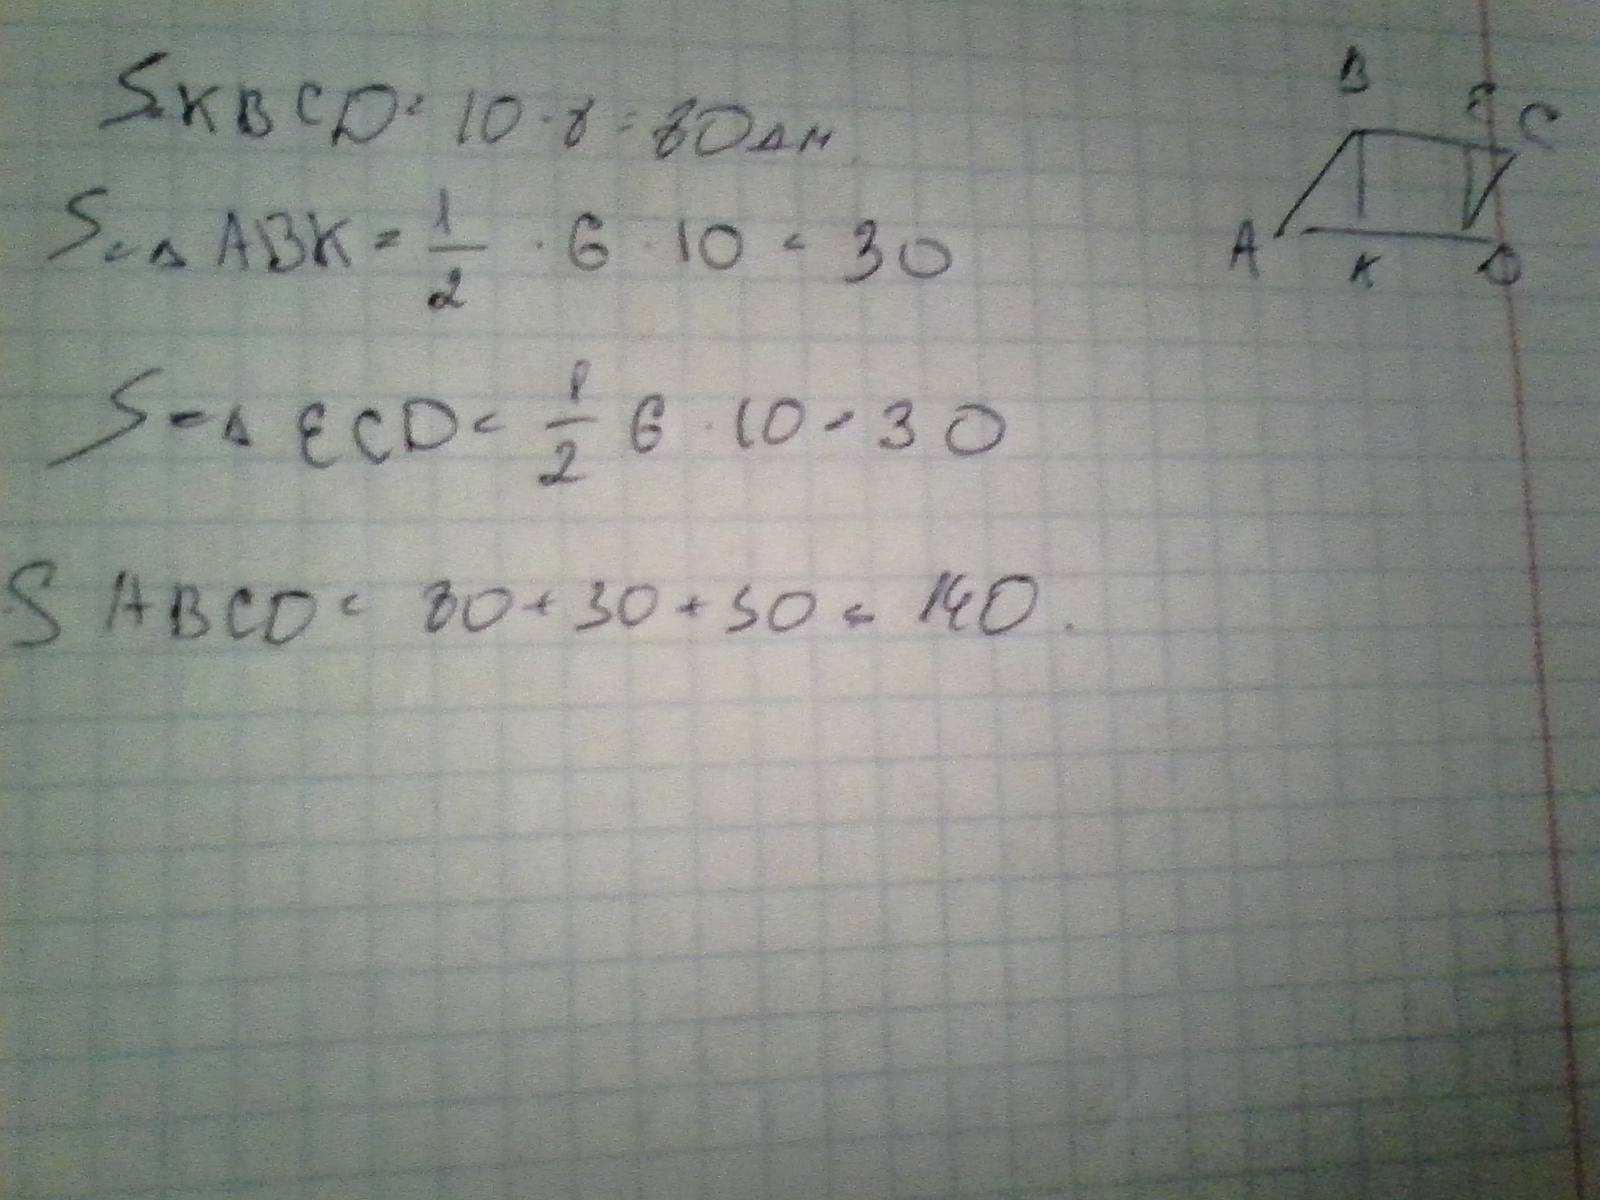 S KBCD = 10 · 8 = 80 дм.
S = Δ ABK = 1/2 · 6 · 10 = 30
S = Δ ECD = 1/2 6 · 10 = 30
S ABCD = 80 + 30 + 30 = 140.
B
E C
A K D